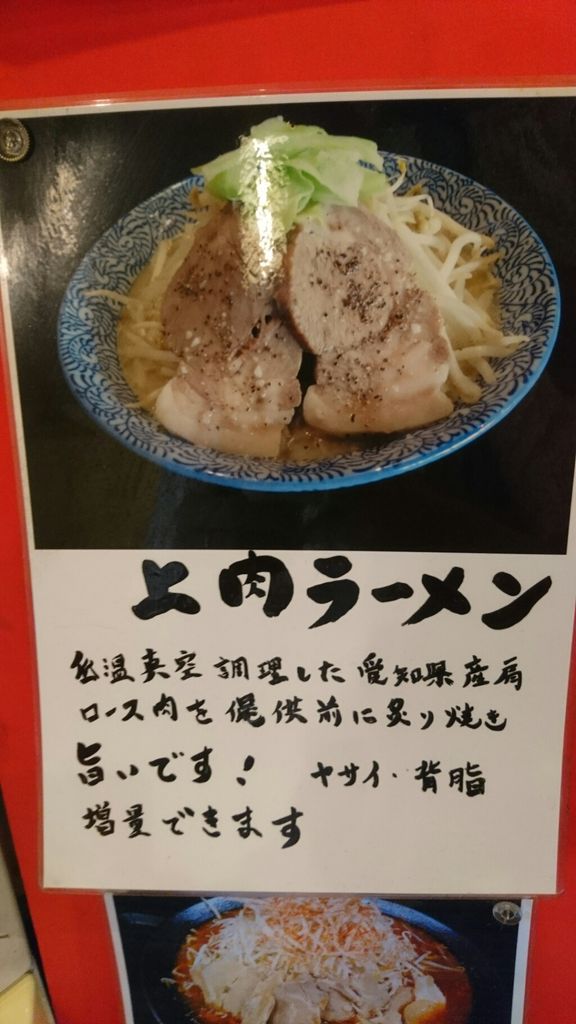 上肉ラーメン
低温真空調理した愛知県産肩
ロース肉を提供前に炙り焼き
旨いです! ヤサイ・背脂
増量できます